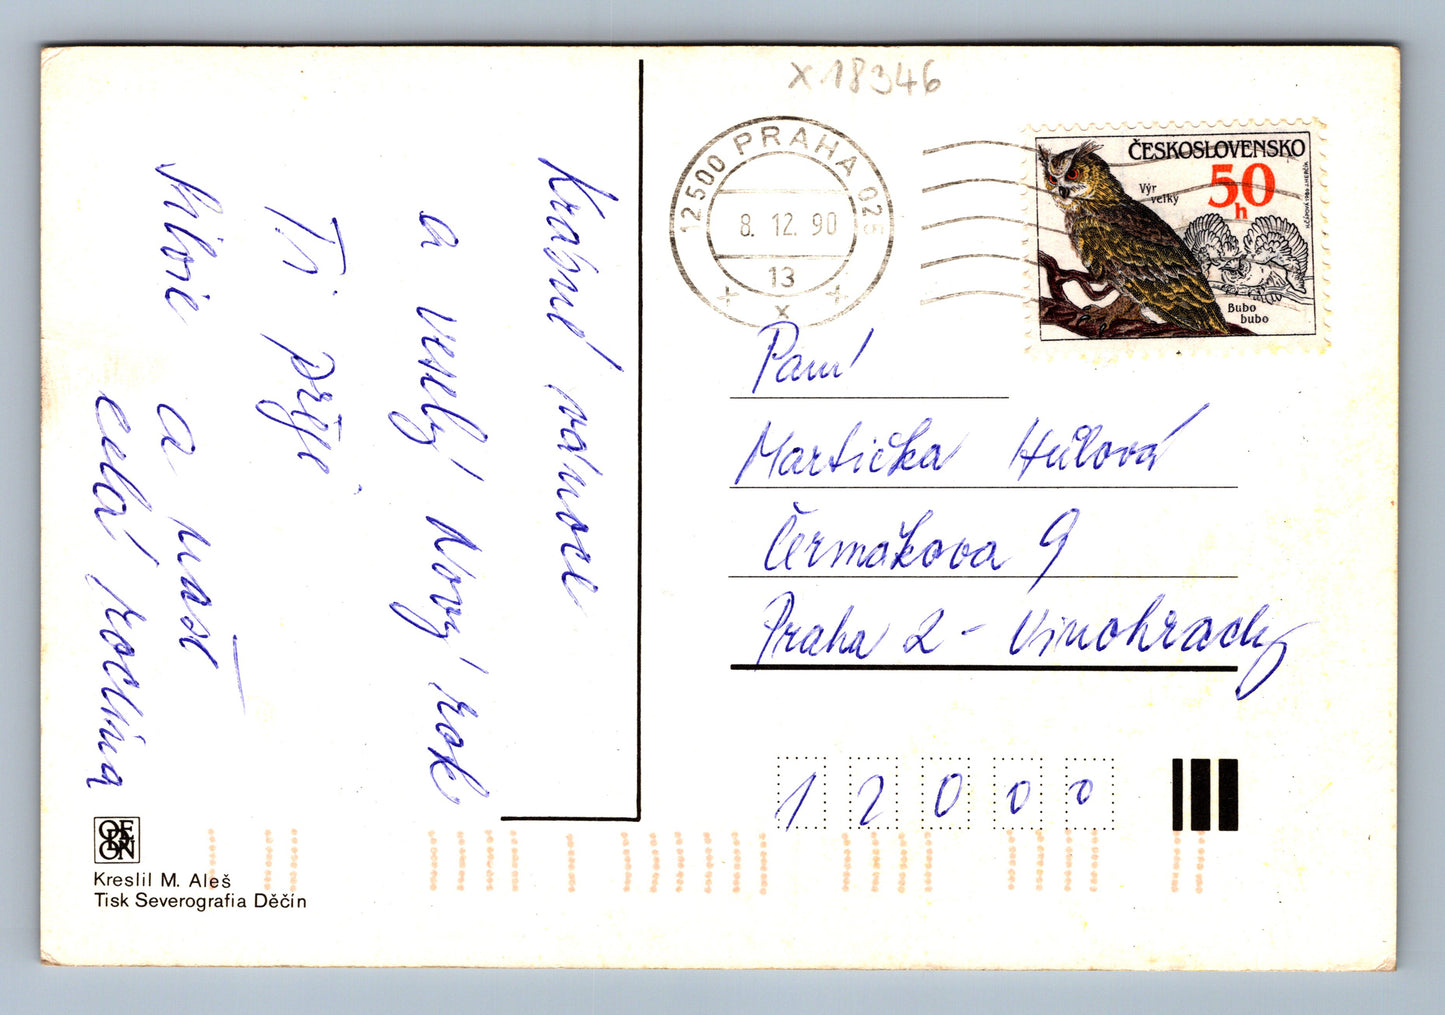 x 18346
12500 PRAHA 025
8. 12. 90
13
x
ČESKOSLOVENSKO
50
h
Výr
velký
Bubo
bubo
Krásné vánoce
a veselý Nový rok
Ti přeje
a naše
celá rodina
Paní
Martička Hůlová
Čermákova 9
Praha 2 - Vinohrady
1 2 0 0 0
ORBIS
Kreslil M. Aleš
Tisk Severografia Děčín